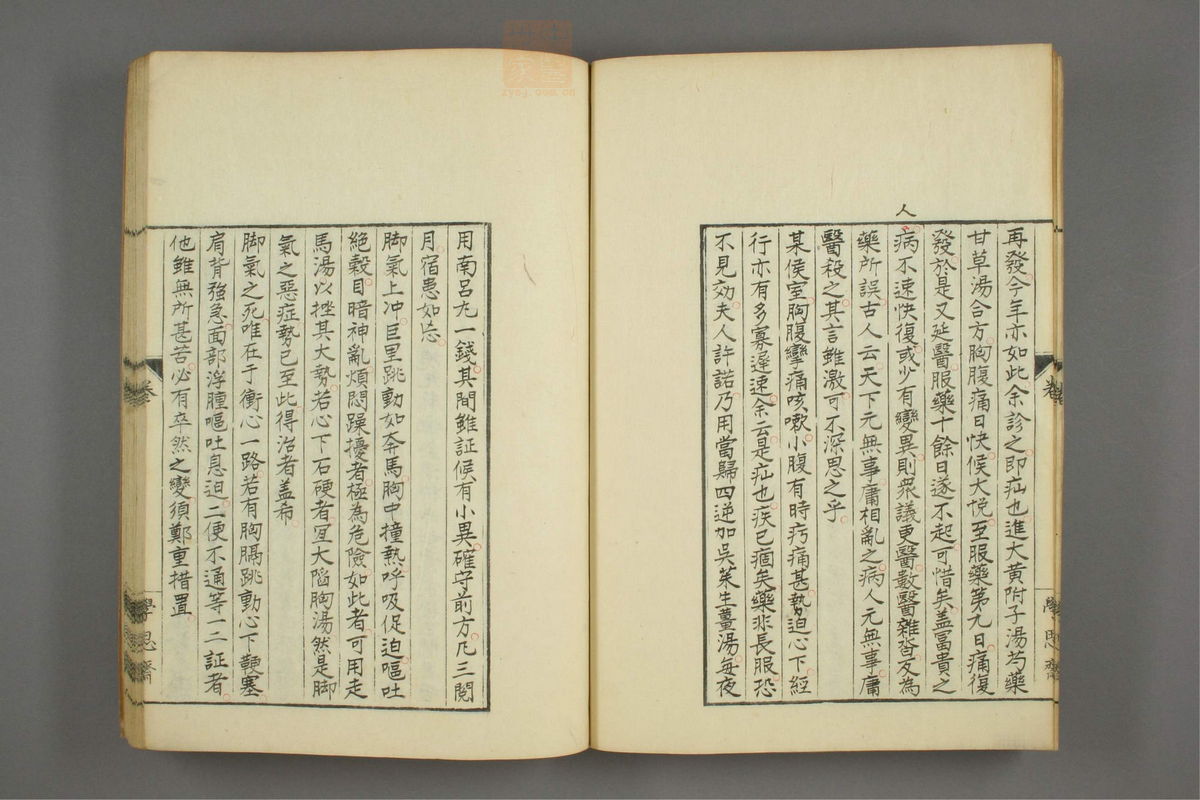 再發今年亦如此余診之即疝也進大黃附子湯芍藥
甘草湯合方胸腹痛日快侯大悅至服藥第九日痛復
發於是又延醫服藥十餘日遂不起可惜矣盖冨貴之
人
病不速快復或少有變異則衆議更醫數醫雜沓友為
藥所誤古人云天下元無事庸相亂之病人元無事庸
醫殺之其言雖激可不深思之乎
某侯室胸腹攣痛咳嗽小腹有時㽲痛甚勢迫心下經
行亦有多寡遲速余云是疝也疾已痼矣藥非長服恐
不見効夫人許諾乃用當歸四逆加吳茱生薑湯每夜
卷
學思齋
用南呂丸一錢其間雖証候有小異確守前方凡三閱
月宿患如忘
脚氣上冲巨里跳動如奔馬胸中撞熱呼吸促迫嘔吐
絕穀目暗神亂煩悶躁擾者極為危險如此者可用走
馬湯以挫其大勢若心下石硬者宜大陷胸湯然是脚
氣之惡症勢已至此得治者盖希
脚氣之死唯在于衝心一路若有胸膈跳動心下鞕塞
肩背強急面部浮腫嘔吐息迫二便不通等一二証者
他雖無所甚苦必有卒然之變須鄭重措置
卷
學思齋
zyoj.com.cn